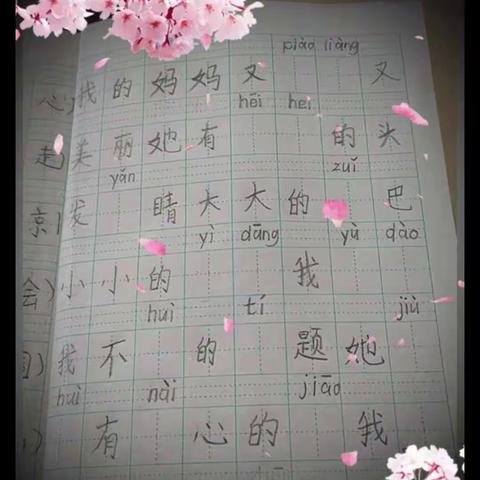 piào liàng
心) 我的妈妈又 又
hēi hei
走) 美丽她有 的头
yǎn zuǐ
京) 发 睛大大的 巴
yì dāng yù dào
会) 小小的 我
huì tí jiù
我不 的 题她
huì nài jiāo
) 有 心的 我